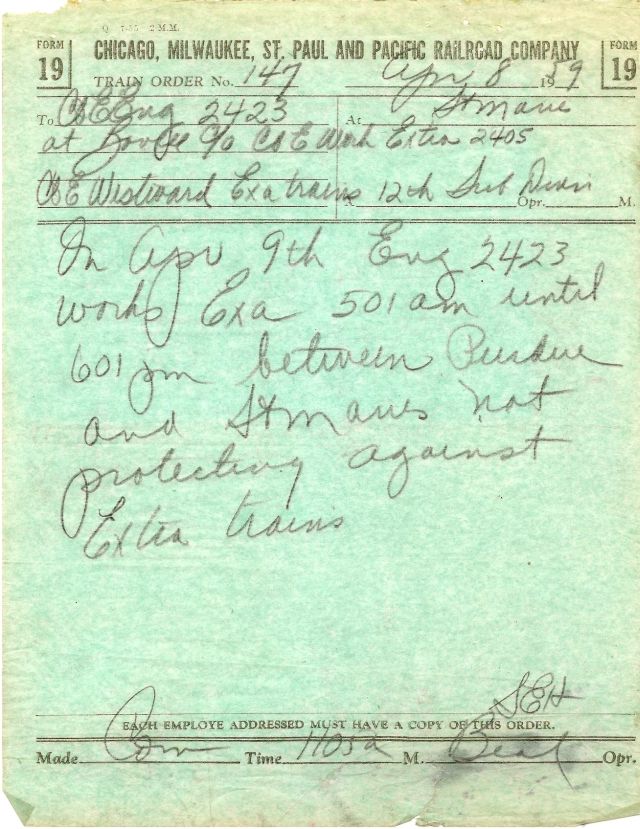 Q 7-35 2 M.M.
FORM 19
CHICAGO, MILWAUKEE, ST. PAUL AND PACIFIC RAILROAD COMPANY
FORM 19
TRAIN ORDER No. 147 Apr 8 1939
To C&E Eng 2423 At St Marie
at C/o C&E Work Extra 2405
C&E Westward Exa trains 12th Sub Divn Opr. M.
In Apr 9th Eng 2423
works Exa 501 am until
601 pm between Purdue
and St Maries not
protecting against
Extra trains
SEH
EACH EMPLOYE ADDRESSED MUST HAVE A COPY OF THIS ORDER.
Made Com Time 1105a M. Beal Opr.